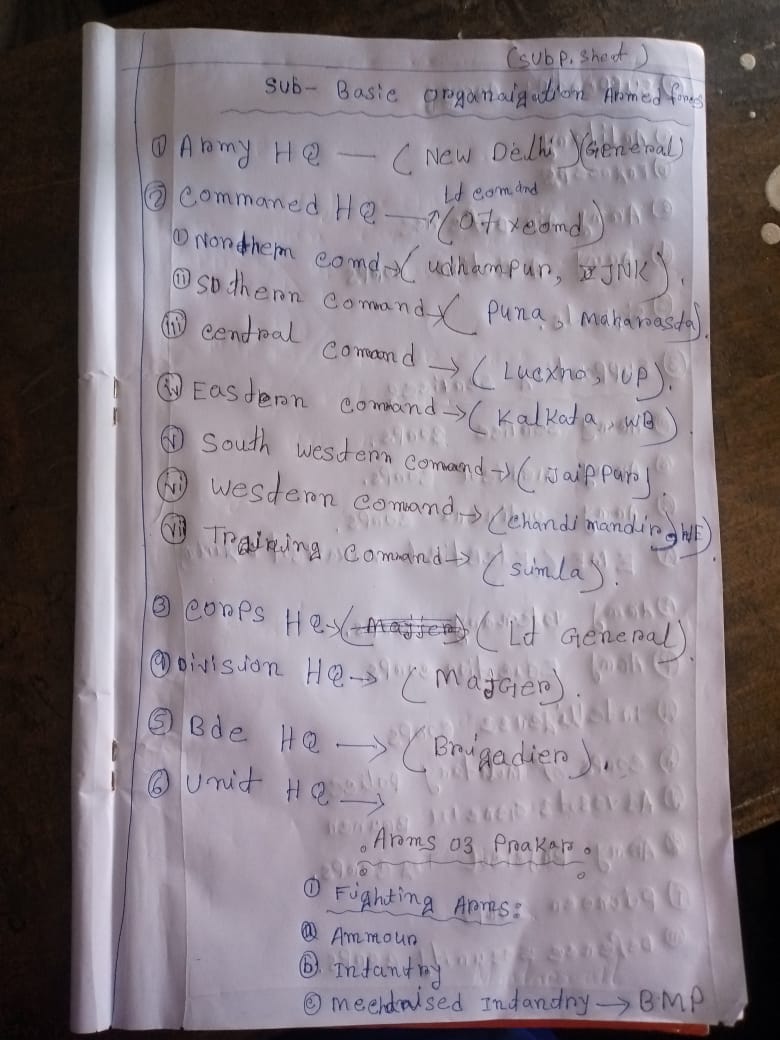 (Sub P. Sheet)
Sub- Basic organaigation Armed forces
① Army HQ — (New Delhi) (General)
Lt comand
② Commaned HQ → (07 x comd)
① Northern comd → (udhampur, JNK).
ii Sothern comand → (Puna, Maharasta).
iii central comand → (Lucxno, UP).
iv Eastern comand → (Kalkata, WB)
v South western comand → (Jaippur).
vi western comand → (chandimandir,
vii Training command → (Simla).
③ corps HQ → (Lt General).
④ Division HQ → (MajGen).
⑤ Bde HQ → (Brigadier).
⑥ Unit HQ →
Arms 03 Prakar
① Fighting Arms:
ⓐ Ammour
ⓑ Infantry
ⓒ mechanised Infandry → BMP